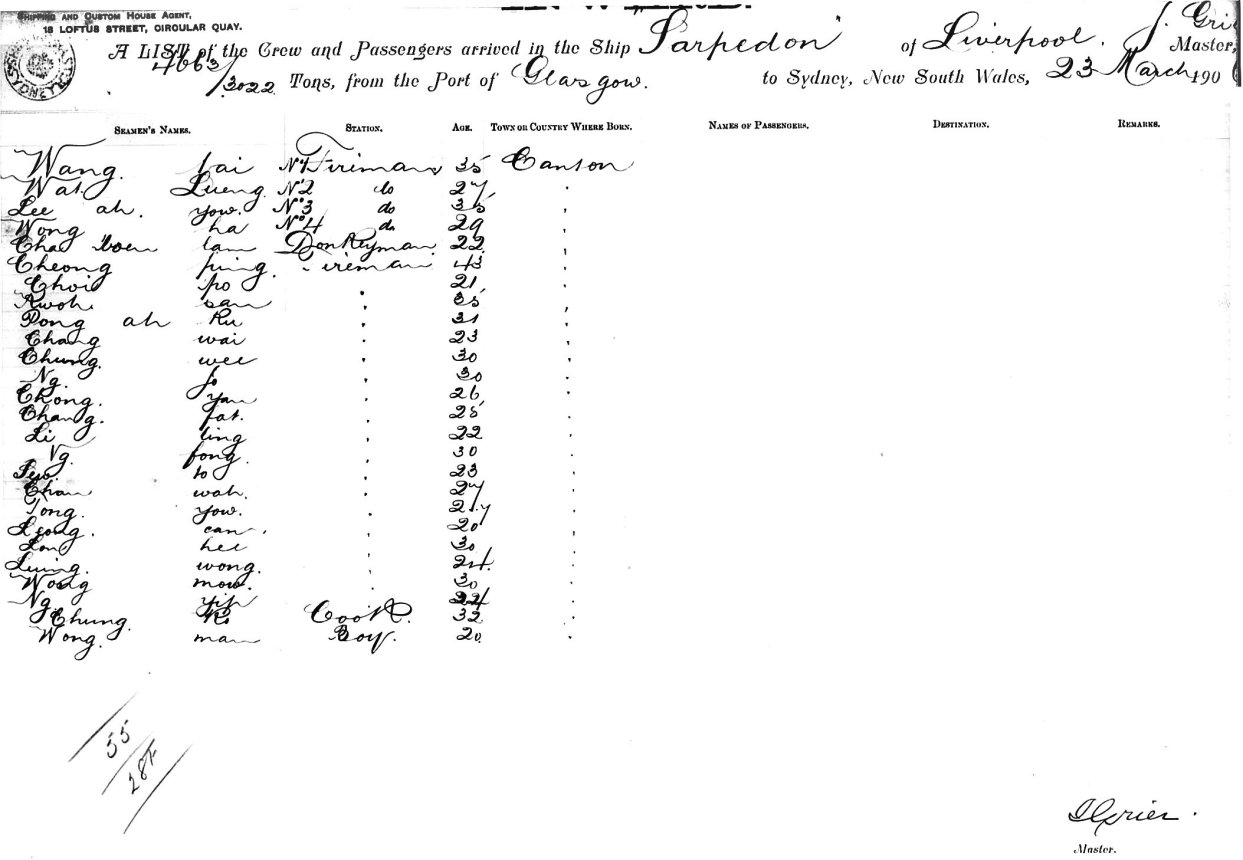 SHIPPING AND CUSTOM HOUSE AGENT,
18 LOFTUS STREET, CIRCULAR QUAY.
A LIST of the Crew and Passengers arrived in the Ship Sarpedon of Liverpool. J. Gri Master,
4663/3022 Tons, from the Port of Glasgow. to Sydney, New South Wales, 23 March 190
SEAMEN'S NAMES. STATION. AGE. TOWN OR COUNTRY WHERE BORN. NAMES OF PASSENGERS. DESTINATION. REMARKS.
Wang. tai No 1 Fireman 35 Canton
Wat. Lueng. No 2 do 27 "
Lee ah. yow. No 3 do 35 "
Wong ha No 4 do 29 "
Chas tam Donkeyman 22 "
Cheong ping. Fireman 43 "
Choi po " 21 "
Kwoh. san " 35 "
Pong ah Ku " 31 "
Chang wai " 23 "
Chung. wee " 30 "
Ng. fo " 30 "
Chong. yan " 26 "
Chang. fat. " 25 "
Li ling " 22 "
Ng. fong. " 30 "
to " 23 "
Chan wah. " 27 "
Tong. yow. " 27 "
Leong. can. " 20 "
hee " 30 "
wong. " 24 "
Wong mow. " 30 "
Ng. yip " "
Chung. Ki Cook. 32 "
Wong. man Boy. 20 "
55
28
Grier.
Master.